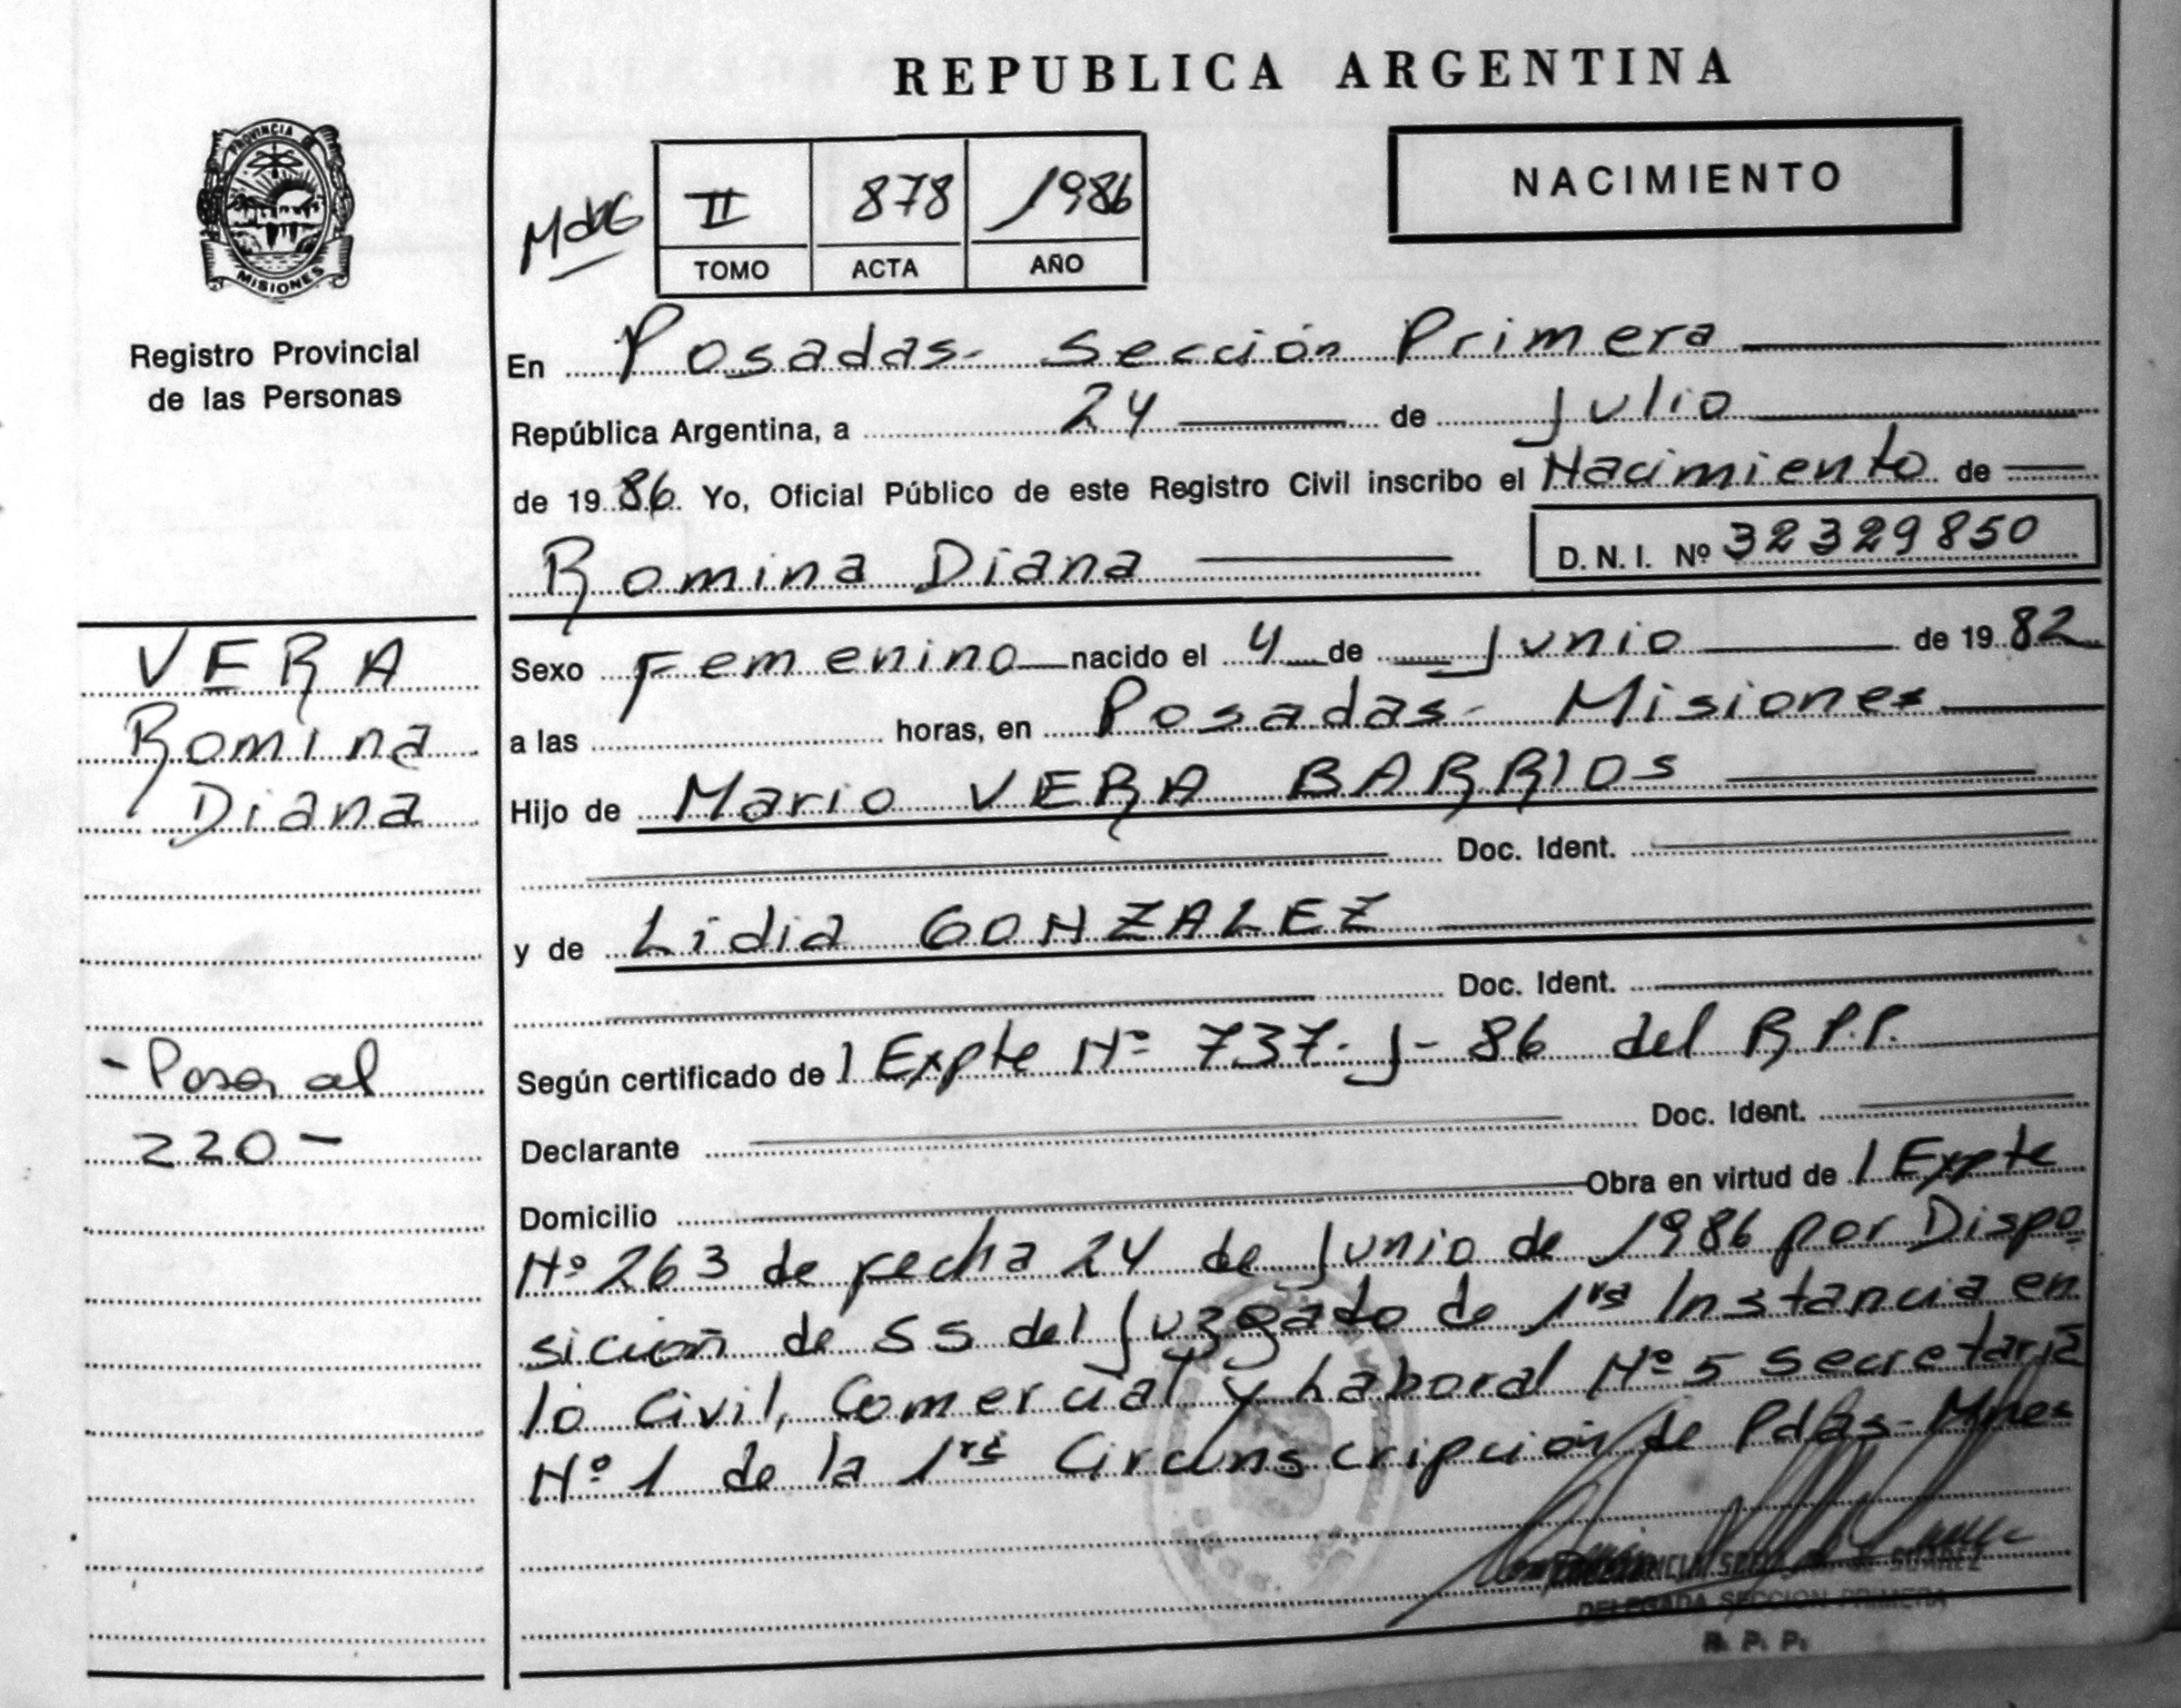 REPUBLICA ARGENTINA
PROVINCIA DE
MISIONES
Registro Provincial
de las Personas
II 878 1986
TOMO ACTA AÑO
NACIMIENTO
En Posadas- Sección Primera
República Argentina, a 24 de Julio
de 19 86 Yo, Oficial Público de este Registro Civil inscribo el Nacimiento de
Romina Diana D. N. I. Nº 32329850
VERA
Romina
Diana
Sexo Femenino nacido el 4 de Junio de 19 82
a las horas, en Posadas- Misiones
Hijo de Mario VERA BARRIOS
Doc. Ident.
y de Lidia GONZALEZ
Doc. Ident.
- Pasa al
220 -
Según certificado de 1 Expte Nº 737- J- 86 del R.P.P.
Declarante Doc. Ident.
Domicilio Obra en virtud de 1 Expte
Nº 263 de fecha 24 de Junio de 1986 por Dispo
sición de SS del Juzgado de 1ra Instancia en
lo Civil, Comercial y Laboral Nº 5 secretaria
Nº 1 de la 1ra Circunscripción de Pdas- Mnes
DE SUAREZ
DELEGADA SECCION PRIMERA
R. P. P.